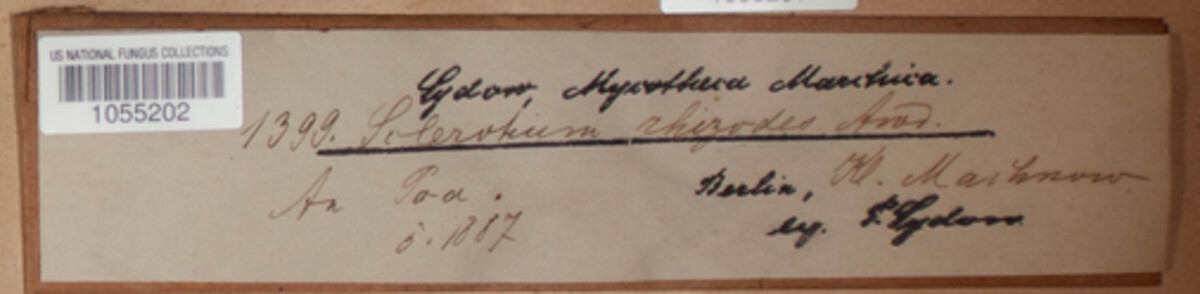 US NATIONAL FUNGUS COLLECTIONS
1055202
Sydow, Mycotheca Marchica.
1399. Sclerotium rhizodes Awd.
An Poa.
Berlin, Kl. Machnow
5. 1887
leg. P. Sydow